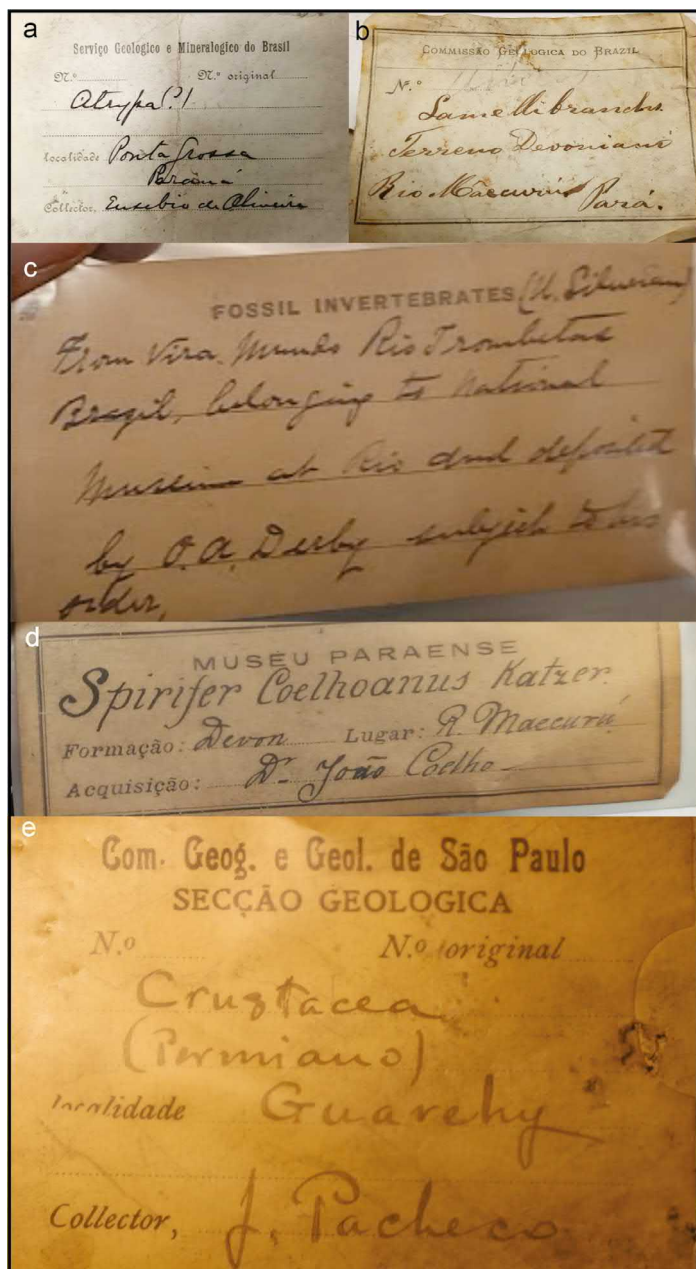 a
Serviço Geologico e Mineralogico do Brasil
N.º N.º original
Atrypa(?)
localidade Ponta Grossa
Paraná
Collector, Eusebio de Oliveira
b
COMMISSÃO GEOLOGICA DO BRAZIL
N.º
Lamellibranchs
Terreno Devoniano
Rio Maecurú Pará.
c
FOSSIL INVERTEBRATES (U. Silurian)
From Vira Mundo Rio Trombetas
Brazil, belonging to National
Museum at Rio and deposited
by O. A. Derby subject to his
order,
d
MUSEU PARAENSE
Spirifer Coelhoanus Katzer.
Formação: Devon Lugar: R. Maecurú
Acquisição: Dr João Coelho
e
Com. Geog. e Geol. de São Paulo
SECÇÃO GEOLOGICA
N.º N.º original
Crustacea
(Permiano)
localidade Guarehy
Collector, J. Pacheco